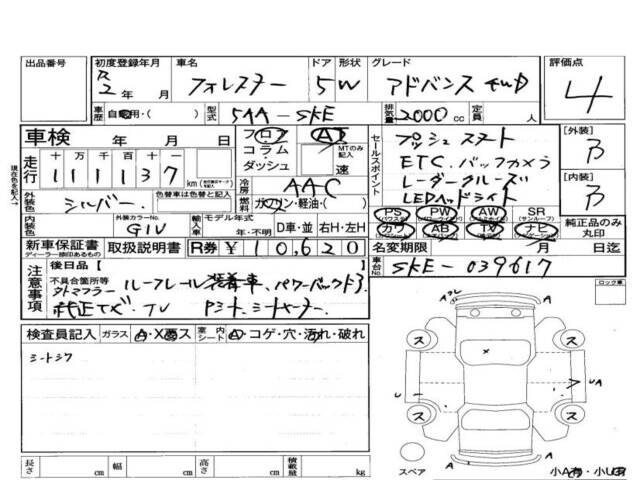 出品番号 初度登録年月 車名 ドア 形状 グレード 評価点
R2年 月 フォレスター 5W アドバンス 4WD 4
車歴 自家用・( ) 型式 5AA-SKE 排気量 2000cc 定員 人
車検 年 月 日 フロア AT セールスポイント プッシュスタート [外装]
現在色を記入→ 走行 十 万 千 百 十 一 コラム・ダッシュ MTのみ記入 速 ETC.バックカメラ B
111137km レーダークルーズ
外装色 シルバー 色替車は色替と記入 冷房 AAC LEDヘッドライト [内装]
燃料 ガソリン・軽油・( ) B
内装色 外装カラーNo. G1V 輸入車 モデル年式 年・不明 D車・並 右H・左H PS PW AW SR (サンルーフ)
カワ AB TV ナビ 純正品のみ丸印
新車保証書 ディーラー捺印あるもの 取扱説明書 R券 ¥10,620 名変期限 月 日迄
注意事項 後日品【 】 車台No. SKE-039617
不具合箇所等 ルーフレール装着車、パワーバックドア ロック車
外マフラー
純正TX". TV Pシート、シートヒーター
検査員記入 ガラス A・X・ス 室内シート A・コゲ・穴・汚れ・破れ
シートシワ
A ス ス
X
U U A
ス ス
スペア A A 小A有・小U有
長さ cm 幅 cm 高さ cm 積載量 kg